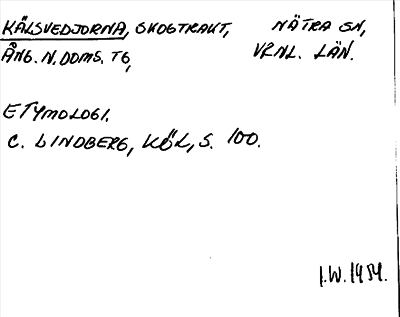 KÅLSVEDJORNA, SKOGTRAKT, NÄTRA SN,
ÅNG. N. DOMS. TG, VRNL. LÄN.
ETYMOLOGI.
C. LINDBERG, KÖL, S. 100.
I.W. 1954.